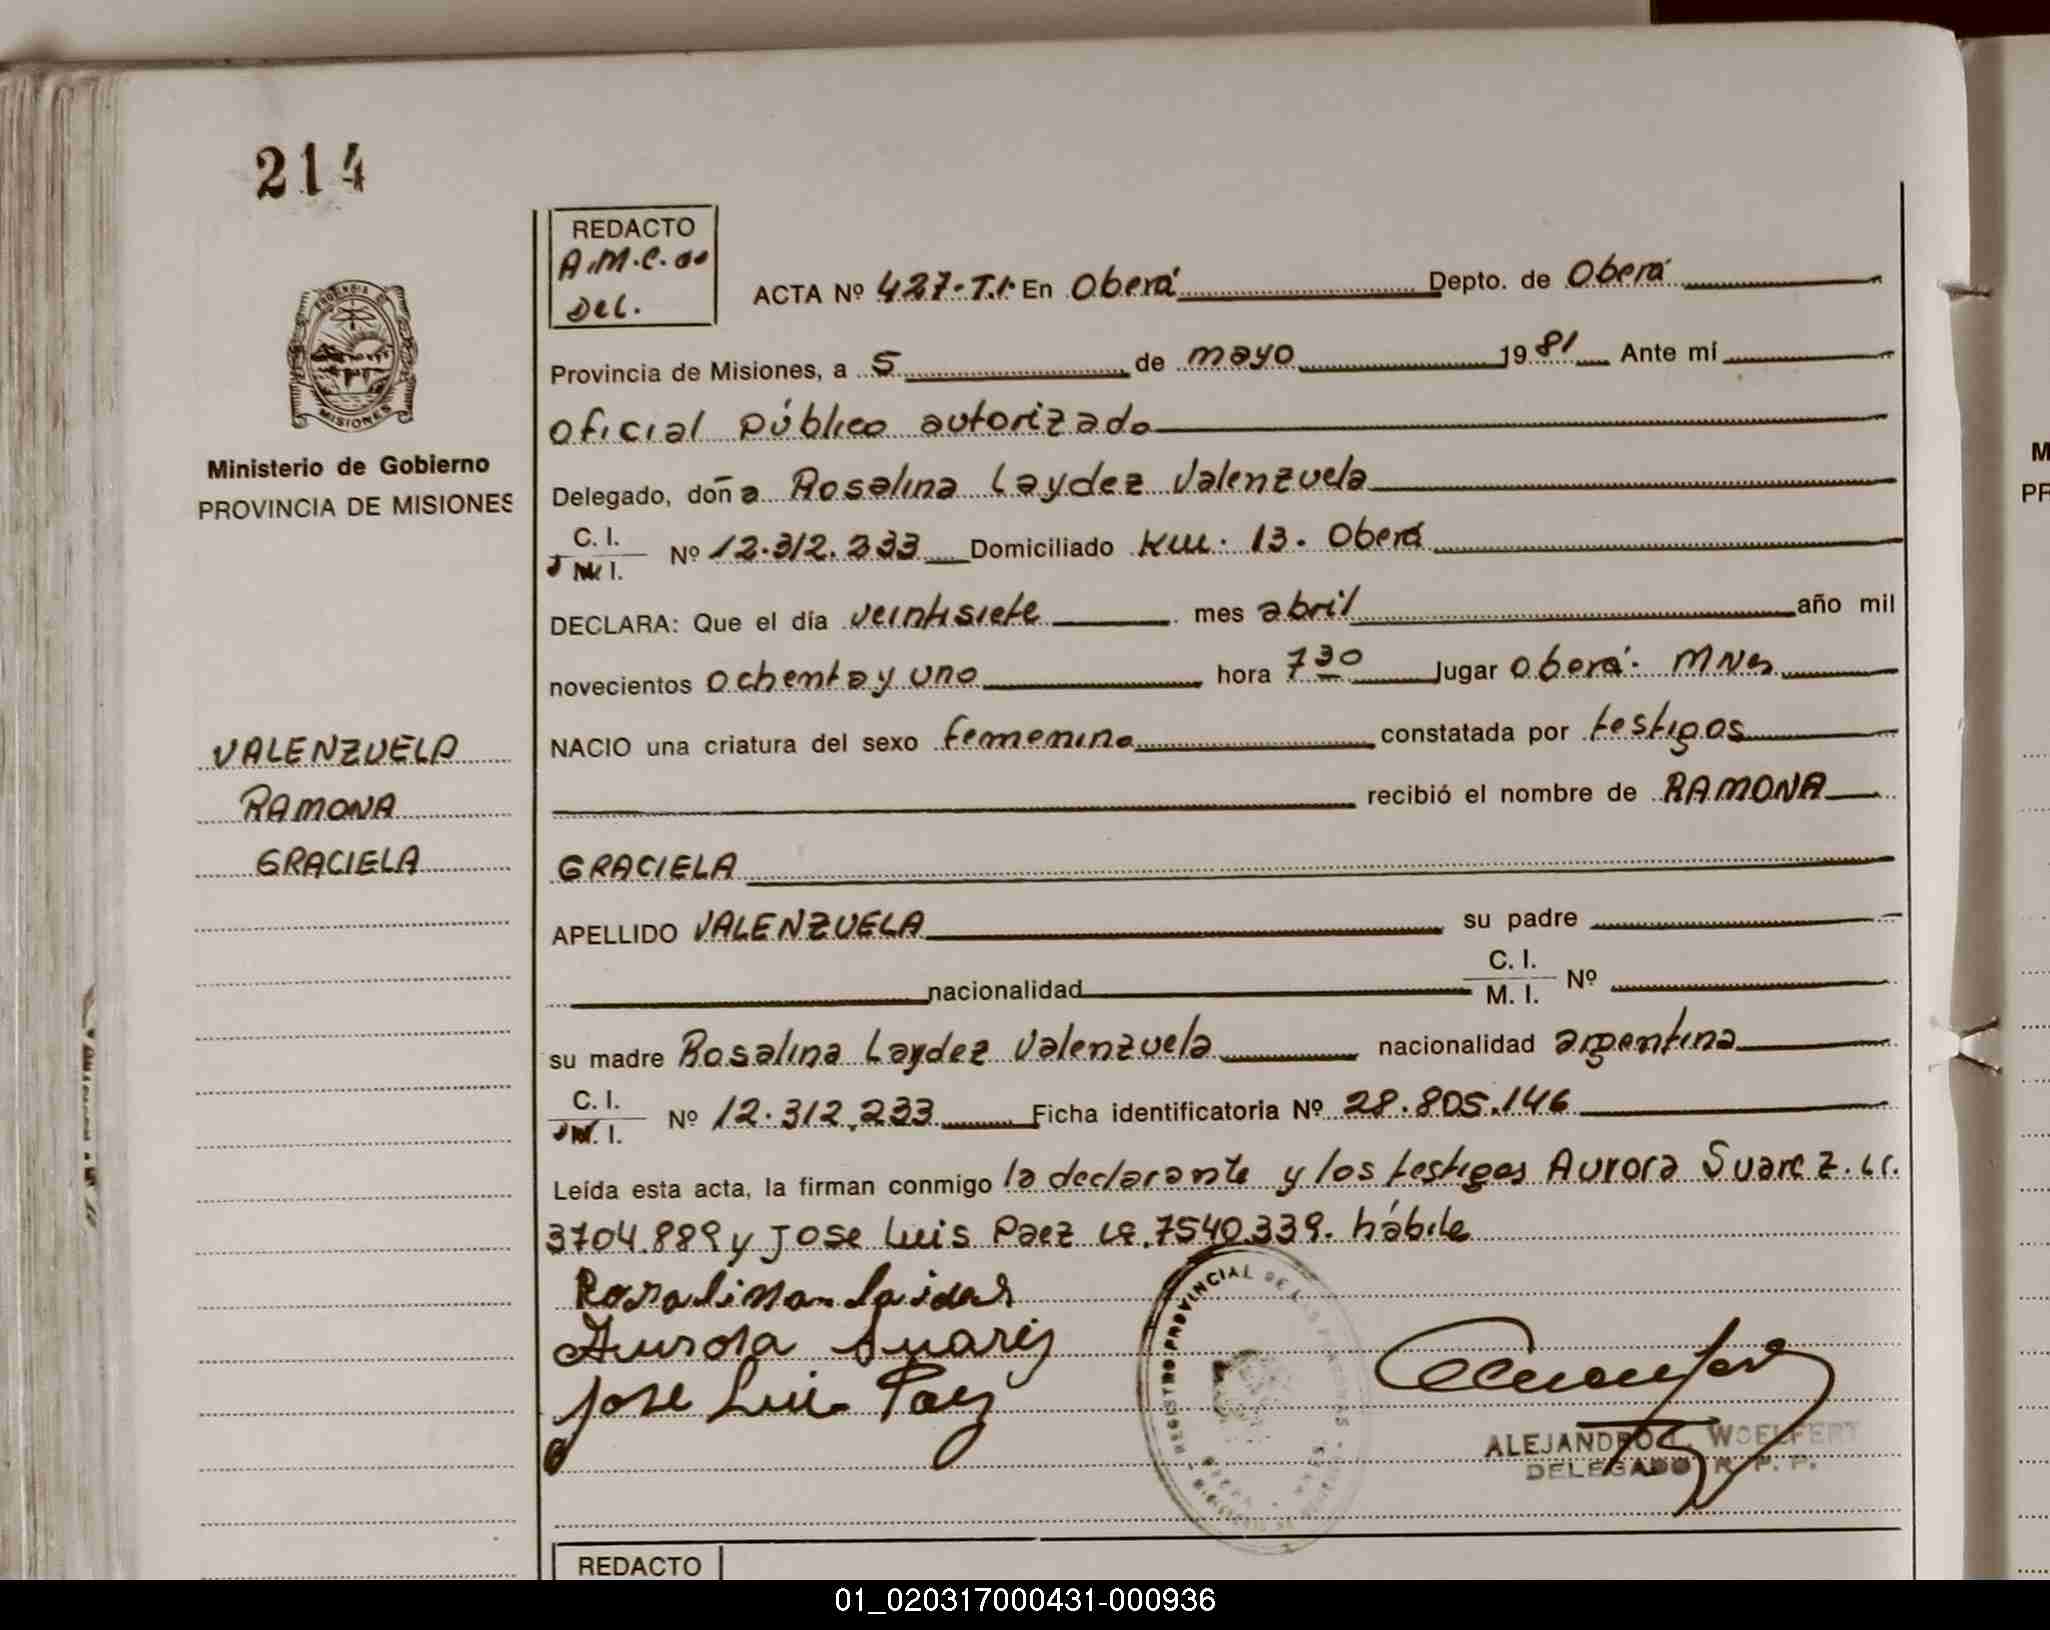 214
REDACTO
A.M.C. ao
Del.
PROVINCIA DE
MISIONES
Ministerio de Gobierno
PROVINCIA DE MISIONES
VALENZUELA
RAMONA
GRACIELA
ACTA Nº 427. T.I. En Oberá Depto. de Oberá
Provincia de Misiones, a 5 de mayo 19 81 Ante mí
oficial público autorizado
Delegado, doña Rosalina Laydez Valenzuela
C. I.
M. I. Nº 12.312.233 Domiciliado Km. 13. Oberá
DECLARA: Que el día veintisiete mes abril año mil
novecientos ochenta y uno hora 7 30 lugar Oberá. MNes
NACIO una criatura del sexo femenino constatada por testigos
recibió el nombre de RAMONA
GRACIELA
APELLIDO VALENZUELA su padre
nacionalidad C. I.
M. I. Nº
su madre Rosalina Laydez Valenzuela nacionalidad argentina
C. I.
M. I. Nº 12.312.233 Ficha identificatoria Nº 28.805.146
Leída esta acta, la firman conmigo la declarante y los testigos Aurora Suarez. LC.
3704.889 y Jose Luis Paez LE. 7540.339. hábile
Rosalina Laides
Aurora Suarez
Jose Luis Paez
REGISTRO PROVINCIAL DE LAS PERSONAS
ALEJANDRO WOELFERT
DELEGADO R. P. P.
REDACTO
M
PR
01_020317000431-000936